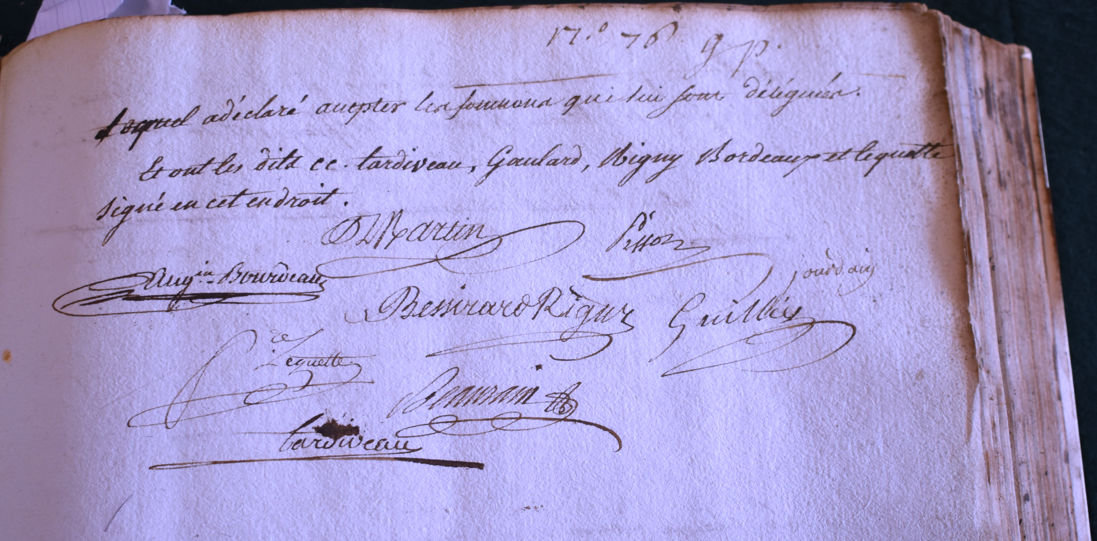 17.° 76 9 p.
Lequel a déclaré accepter les sommons qui lui sont déléguées.
Et ont les dits cc. tardiveau, Gaulard, Rigny Bordeaux et lequette
signé en cet endroit.
Martin Pesson
Bourdeau jourdain
Rigny Guillier
Lequette
Beaurain
tardiveau